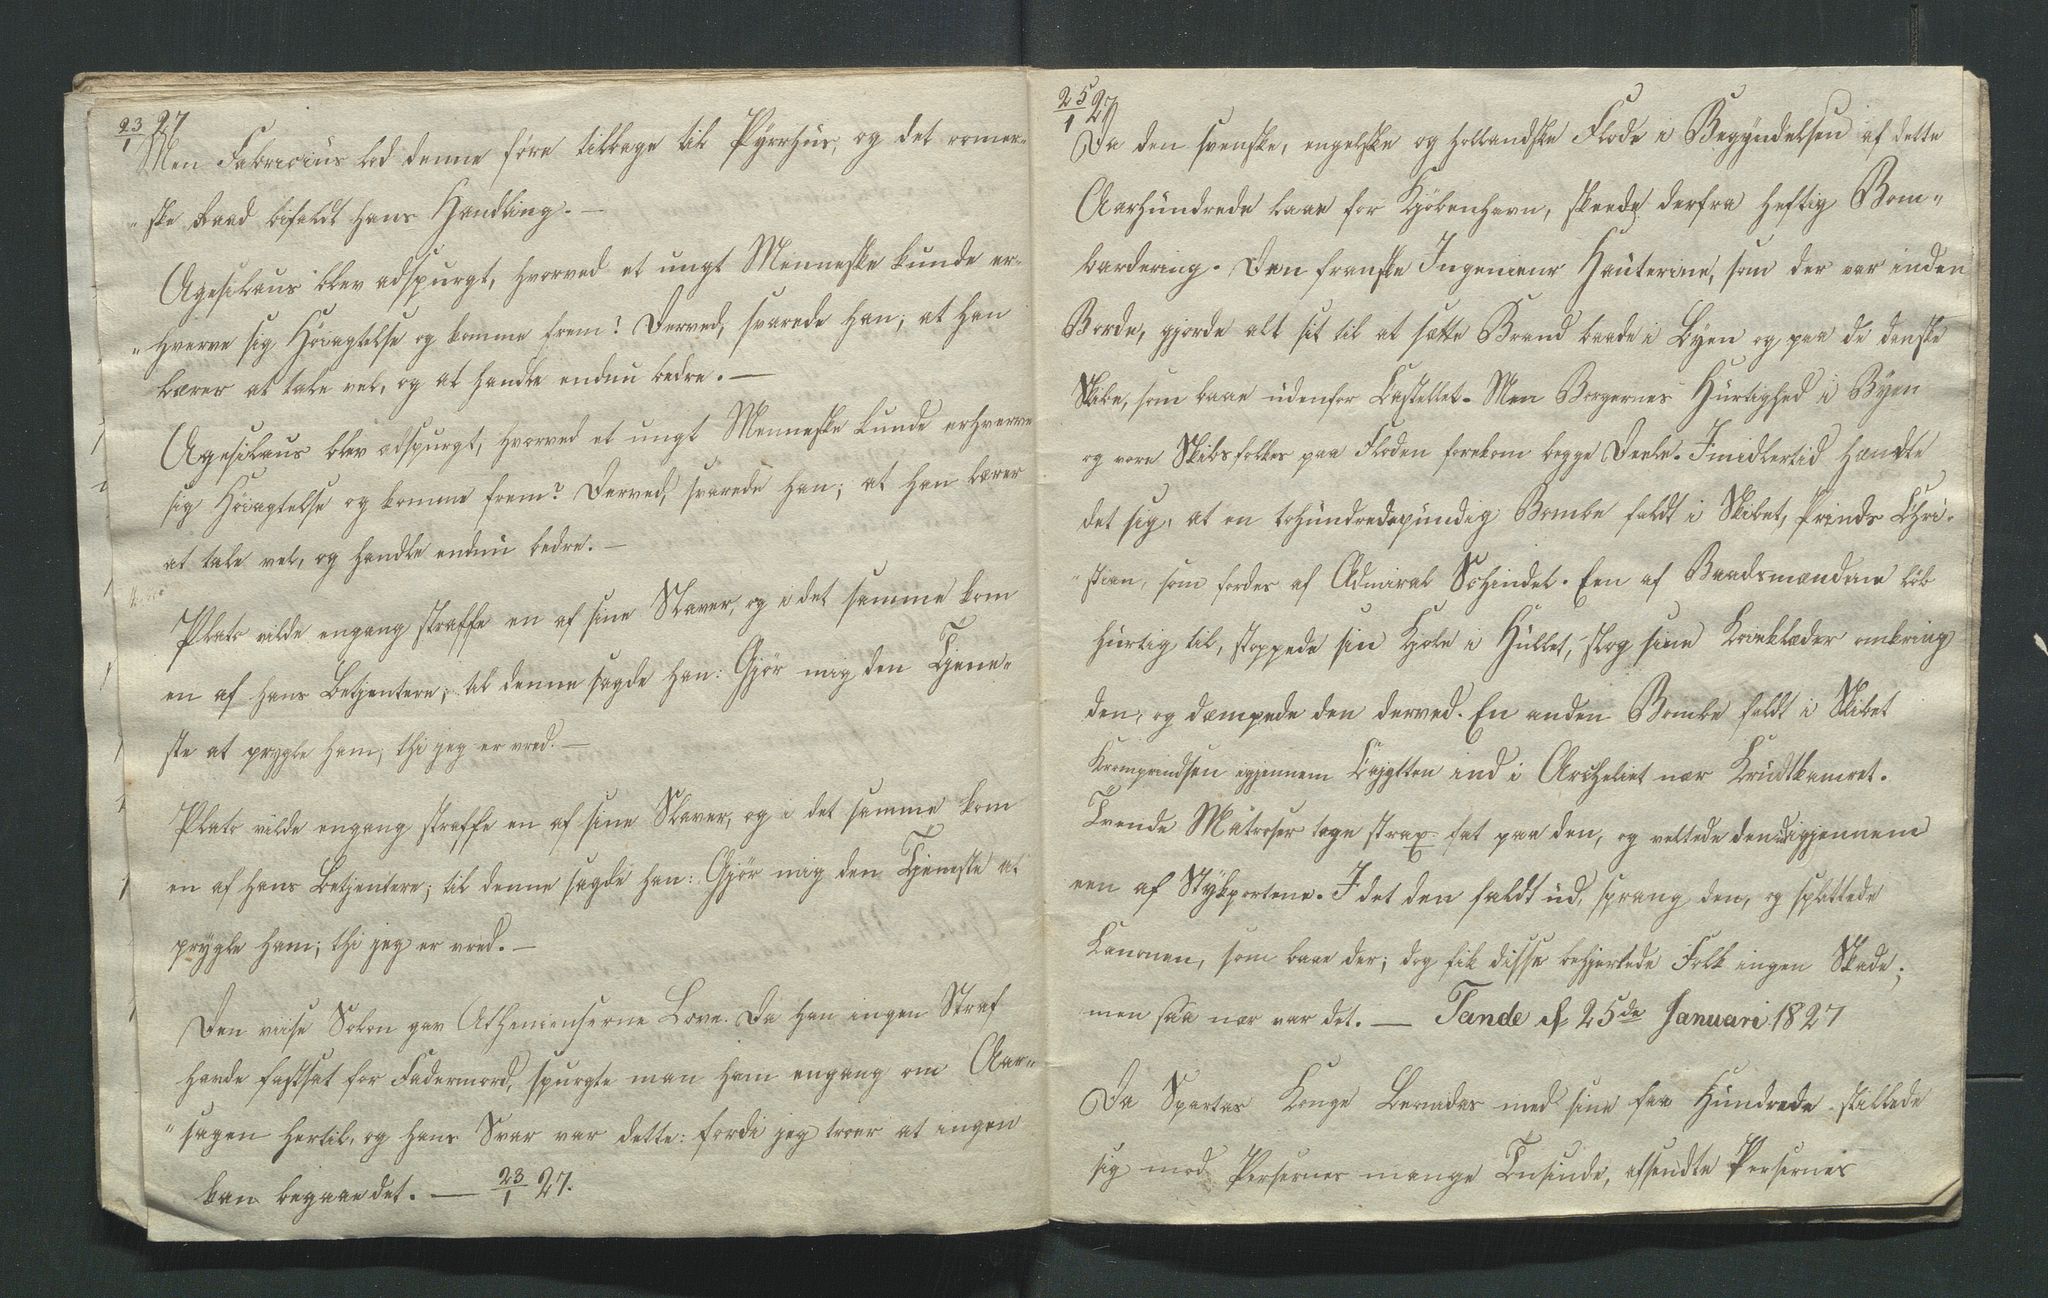 23/1 27
Men Fabricius lod denne føre tilbage til Pÿrrhus, og det romer-
"ske Raad bifaldt hans Handling. —
Agesilaus blev adspurgt, hvorved et ungt Menneske kunde er-
"hverve sig Høiagtelse og komme frem? Derved, svarede han; at han
lærer at tale vel, og at handle endnu bedre. —
Agesilaus blev adspurgt, hvorved et ungt Menneske kunde erhverve
sig Høiagtelse og komme frem? Derved, svarede han; at han lærer
at tale vel, og handle endnu bedre. —
Plato vilde engang straffe en af sine Slaver, og i det samme kom
en af hans Betjentere; til denne sagde han: Gjør mig den Tjene-
ste at prygle ham; thi jeg er vred. —
Plato vilde engang straffe en af sine Slaver, og i det samme kom
en af hans Betjentere; til denne sagde han: Gjør mig den Tjeneste at
prÿgle ham; thi jeg er vred. —
Den viise Solon gav Athenienserne Love. Da han ingen Straf
havde fastsat for Fadermord, spurgte man ham engang om Aar-
"sagen hertil, og hans Svar var dette: fordi jeg troer at ingen
kan begaae det. — 23/1 27.
25/1 27
Da den svenske, engelske og hollandske Flode i Begÿndelsen af dette
Aarhundrede laae for Kjöbenhavn, skeede derfra heftig Bom-
bardering. Den franske Ingenieur Hauterive, som der var inden
Borde, gjorde alt sit til at sætte Brand baade i Byen og paa de danske
Skibe, som laae udenfor Castellet. Men Borgernes Hurtighed i Bÿen
og vore Skibsfolkes paa Floden forekom begge Deele. Imidlertid hændte
det sig, at en tohundredepundig Bombe faldt i Skibet, Prinds Chri-
"stian, som førdes af Admiral Schindel. Een af Baadsmændene løb
hurtig til, stoppede sin Kjole i Hullet, slog sine Kneklæder omkring
den, og dæmpede den derved. En anden Bombe faldt i Skibet
Kronprindsen igjennem Cajytten ind i Archeliet nær Krudtkamret.
Trende Matroser toge strax fat paa den, og veltede den ud igjennem
een af Stÿkportene. I det den faldt ud, sprang den, og splittede
Canonen, som laae der; dog fik disse behjertede Folk ingen Skade;
men saa nær var det. — Tande d. 25de Januari 1827
Da Spartas Konge Leonidas med sine faa Hundrede stillede
sig mod Persernes mange Tusinde, afsendte Persernes